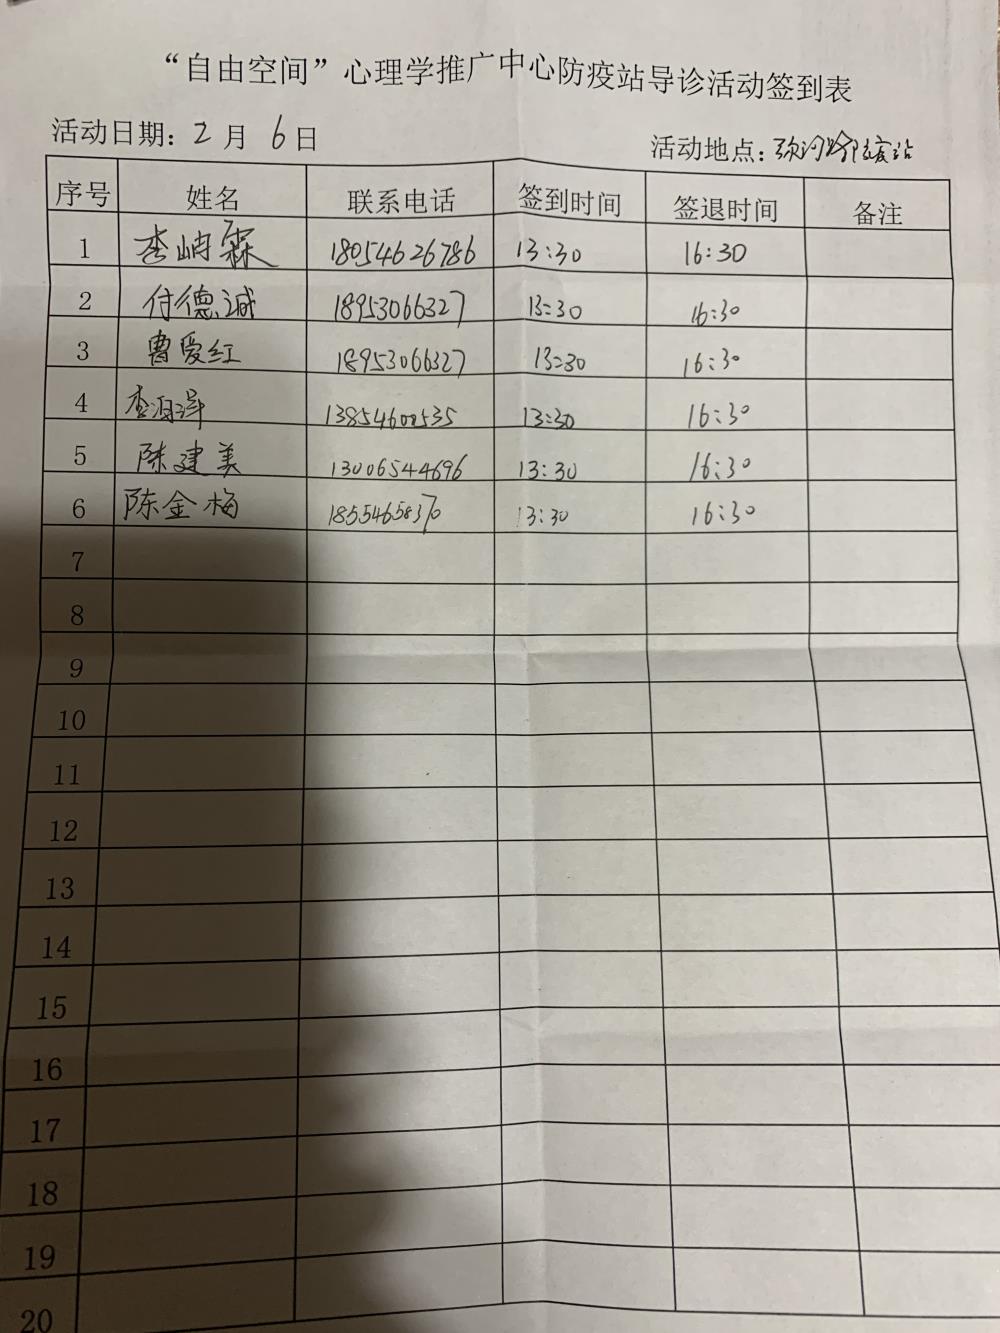 “自由空间”心理学推广中心防疫站导诊活动签到表
活动日期：2月6日 活动地点：
序号 姓名 联系电话 签到时间 签退时间 备注
1 李屿霖 18054626786 13:30 16:30
2 付德诚 18953066327 13:30 16:30
3 曹爱红 18953066327 13:30 16:30
4 13:30 16:30
5 陈建美 13006544696 13:30 16:30
6 陈金梅 18554658370 13:30 16:30
7
8
9
10
11
12
13
14
15
16
17
18
19
20